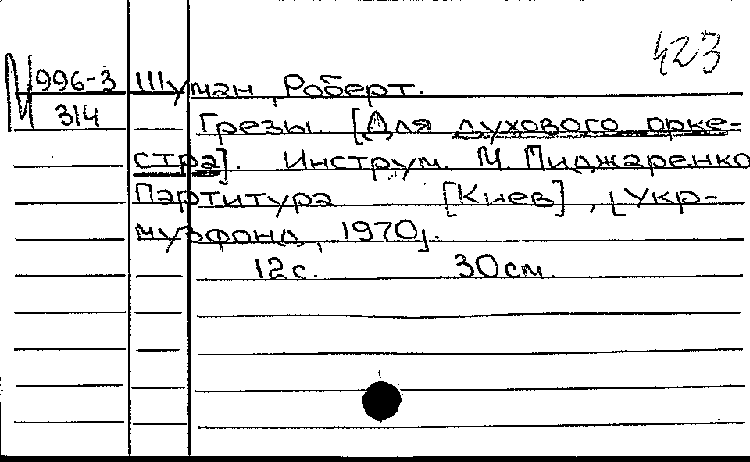 423
М 996-3 Шуман, Роберт.
314
Грезы. [Для духового орке-
стра]. Инструм. М. Пиджаренко
Партитура [Киев], [Укр-
музфонд, 1970].
12 с. 30 см.